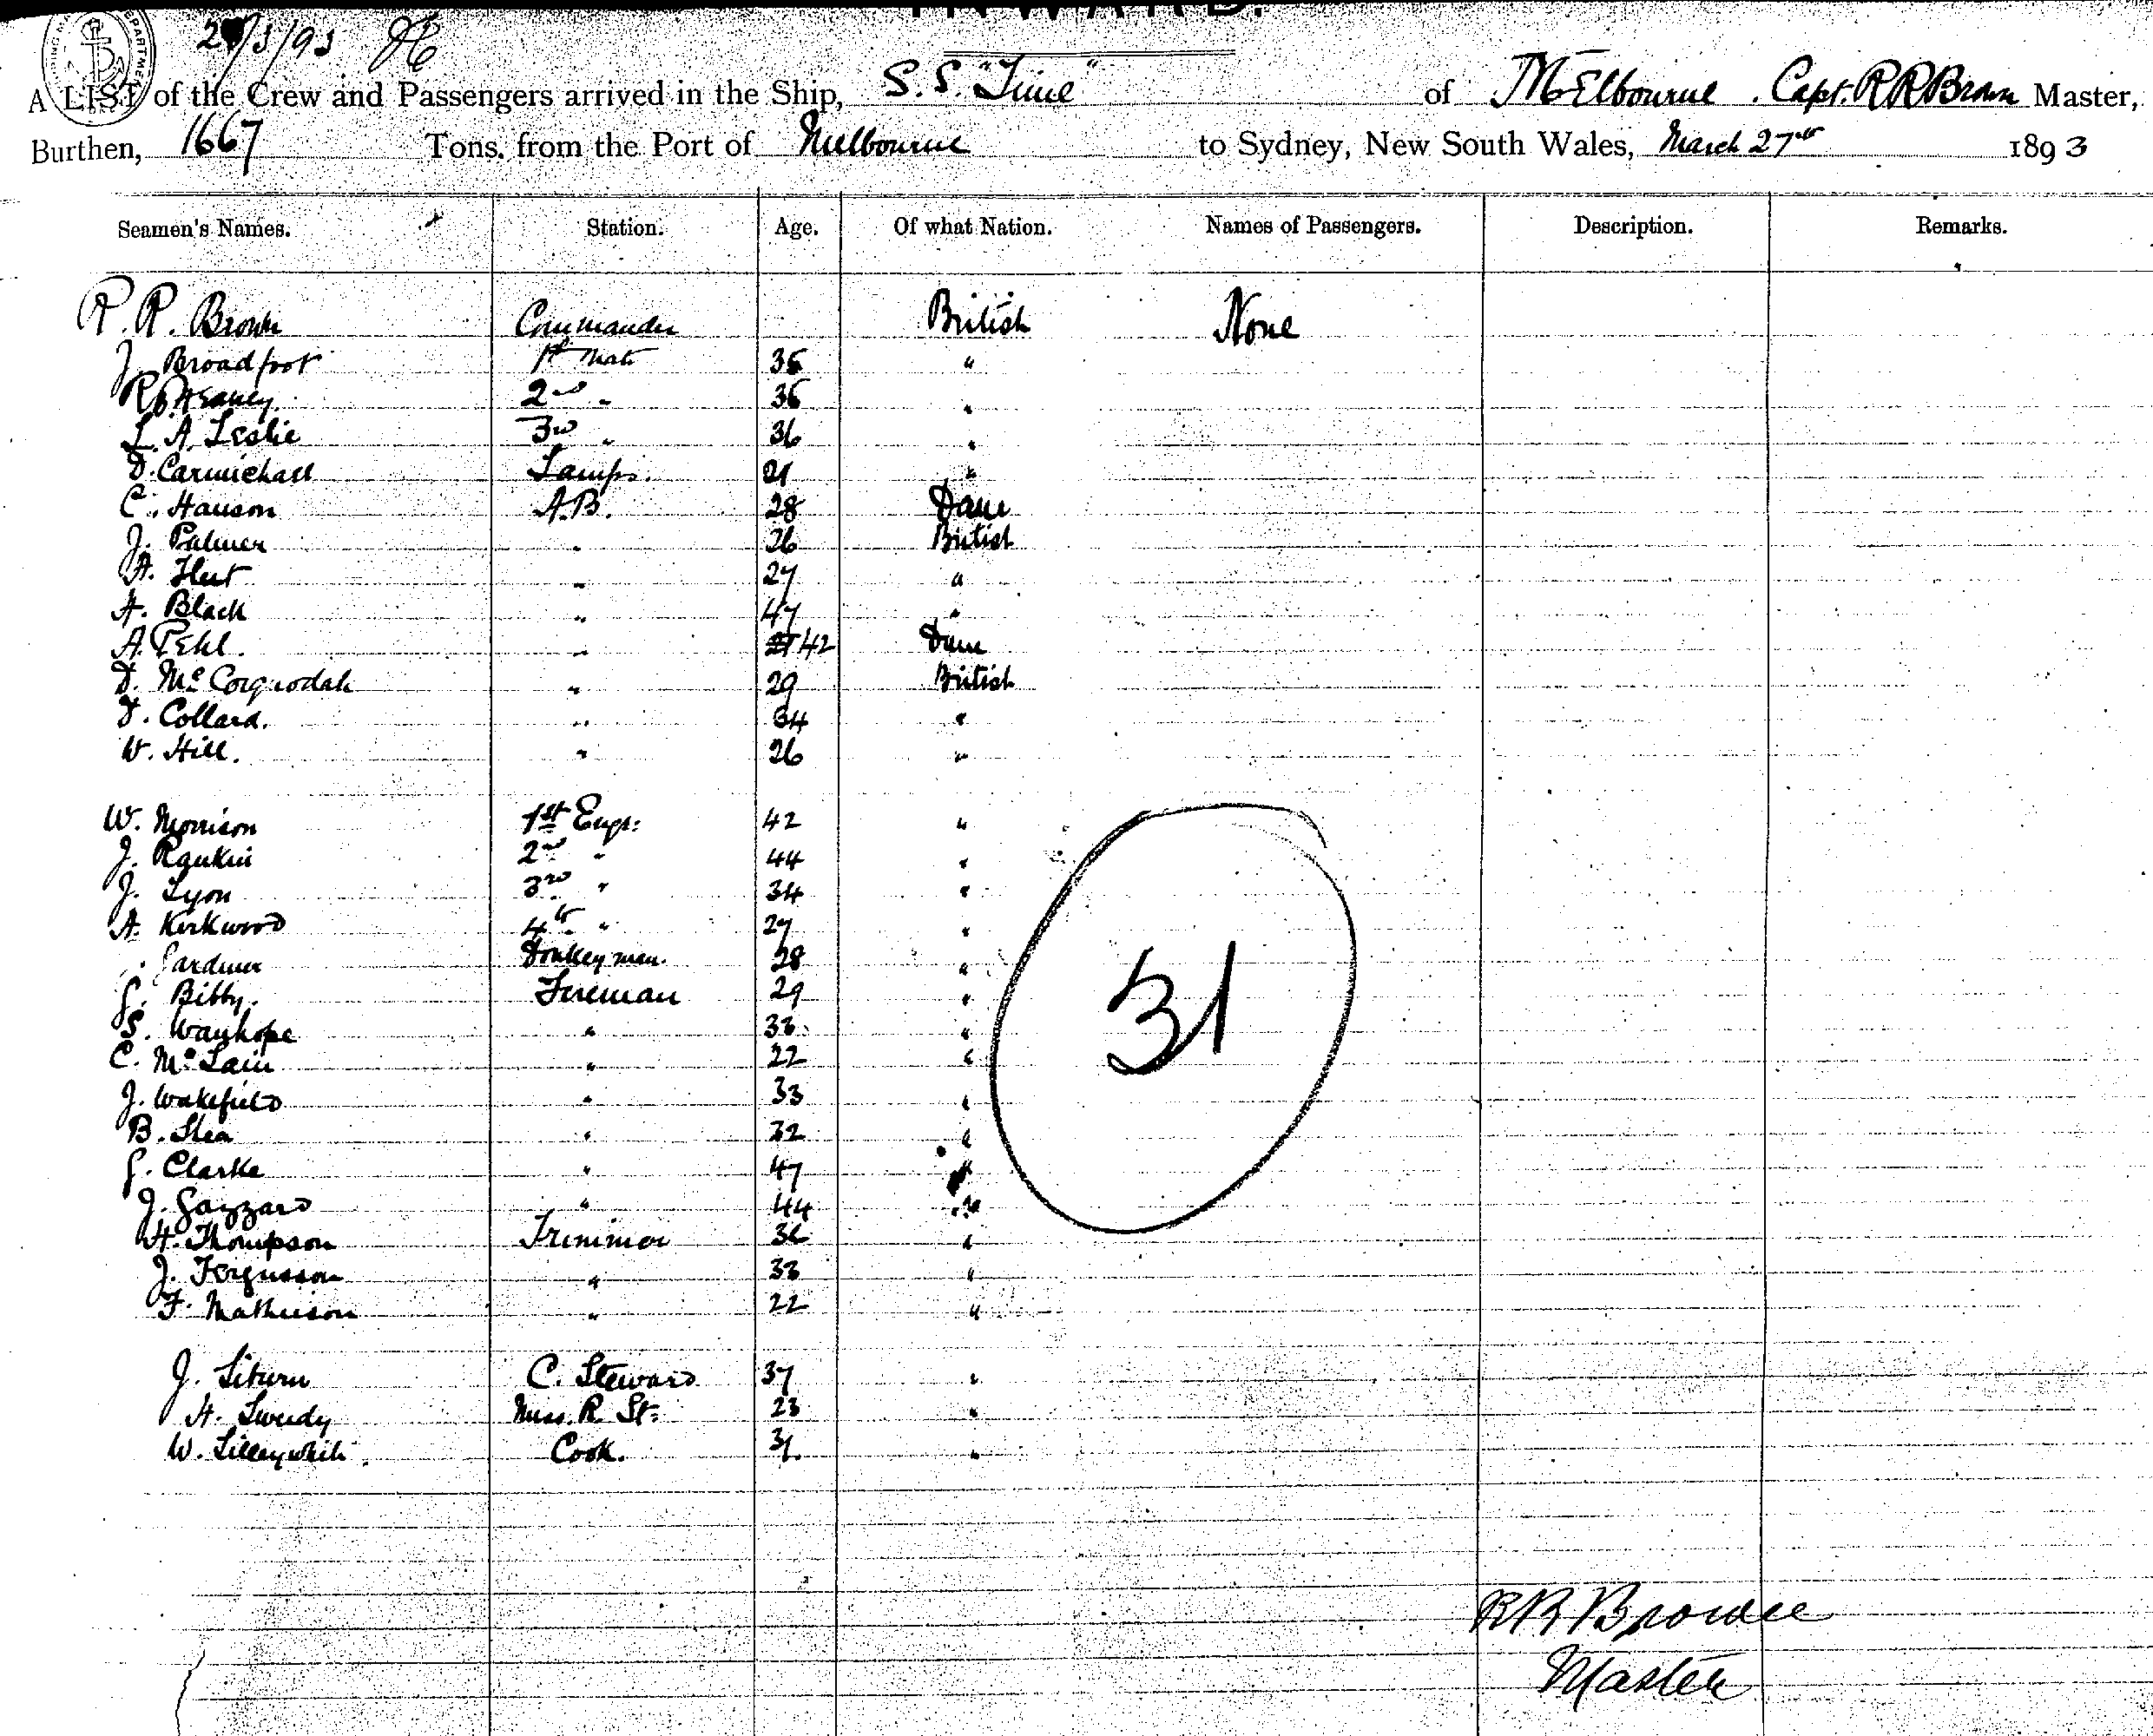 INWARD.
DEPARTMENT
2 /3/93
A LIST of the Crew and Passengers arrived in the Ship, S.S. "Time" of Melbourne. Capt. R R Brown Master,
Burthen, 1667 Tons. from the Port of Melbourne to Sydney, New South Wales, March 27th 1893
Seamen's Names. Station. Age. Of what Nation. Names of Passengers. Description. Remarks.
R. R. Brown Commander British None
J. Broadfoot 1st Mate 35 "
2nd " 35 "
L. A. Leslie 3rd " 36 "
D. Carmichael Lamps. 21 "
C. Hanson A.B. 28 Dane
J. Palmer " 26 British
A. " 27 "
A. Black " 47 "
A. Pehl. " 42 Dane
D. McCorquodale " 29 British
D. Collard. " 34 "
W. Hill. " 26 "
W. Morrison 1st Engr: 42 "
J. Rankin 2nd " 44 "
J. Lyon 3rd " 34 "
A. Kirkwood 4th " 27 "
Gardiner Donkeyman. 28 "
G. Bibby. Fireman 29 "
S. Wauhope " 33 "
C. McLain " 22 "
J. Wakefield " 33 "
B. Shea " 32 "
G. Clarke " 47 "
J. Gazzard " 44 "
H. Thompson Trimmer 36 "
J. Fergusson " 33 "
F. Mathieson " 22 "
31
J. C. Steward 37 "
H. Tweedy Mess. R. St: 23 "
W. Lilleywhite. Cook. 31. "
R R Browne
Master